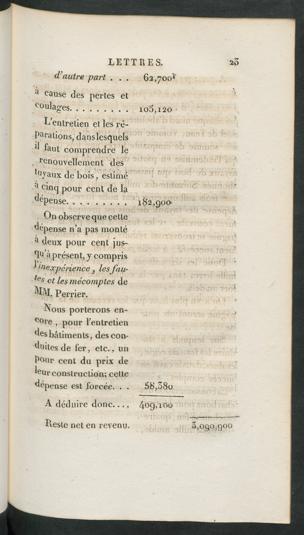 LETTRES. 23
d'autre part . . . 62,700
à cause des pertes et
coulages. . . . . . . . . 105,120
L'entretien et les ré-
parations, dans lesquels
il faut comprendre le
renouvellement des
tuyaux de bois, estimé
à cinq pour cent de la
dépense. . . . . . . . . 182,900
On observe que cette
dépense n'a pas monté
à deux pour cent jus-
qu'à présent, y compris
l'inexpérience, les fau-
tes et les mécomptes de
MM. Perrier.
Nous porterons en-
core, pour l'entretien
des bâtimens, des con-
duites de fer, etc., un
pour cent du prix de
leur construction; cette
dépense est forcée. . . 58,380
A déduire donc...., 409,100
Reste net en revenu. 3,090,900